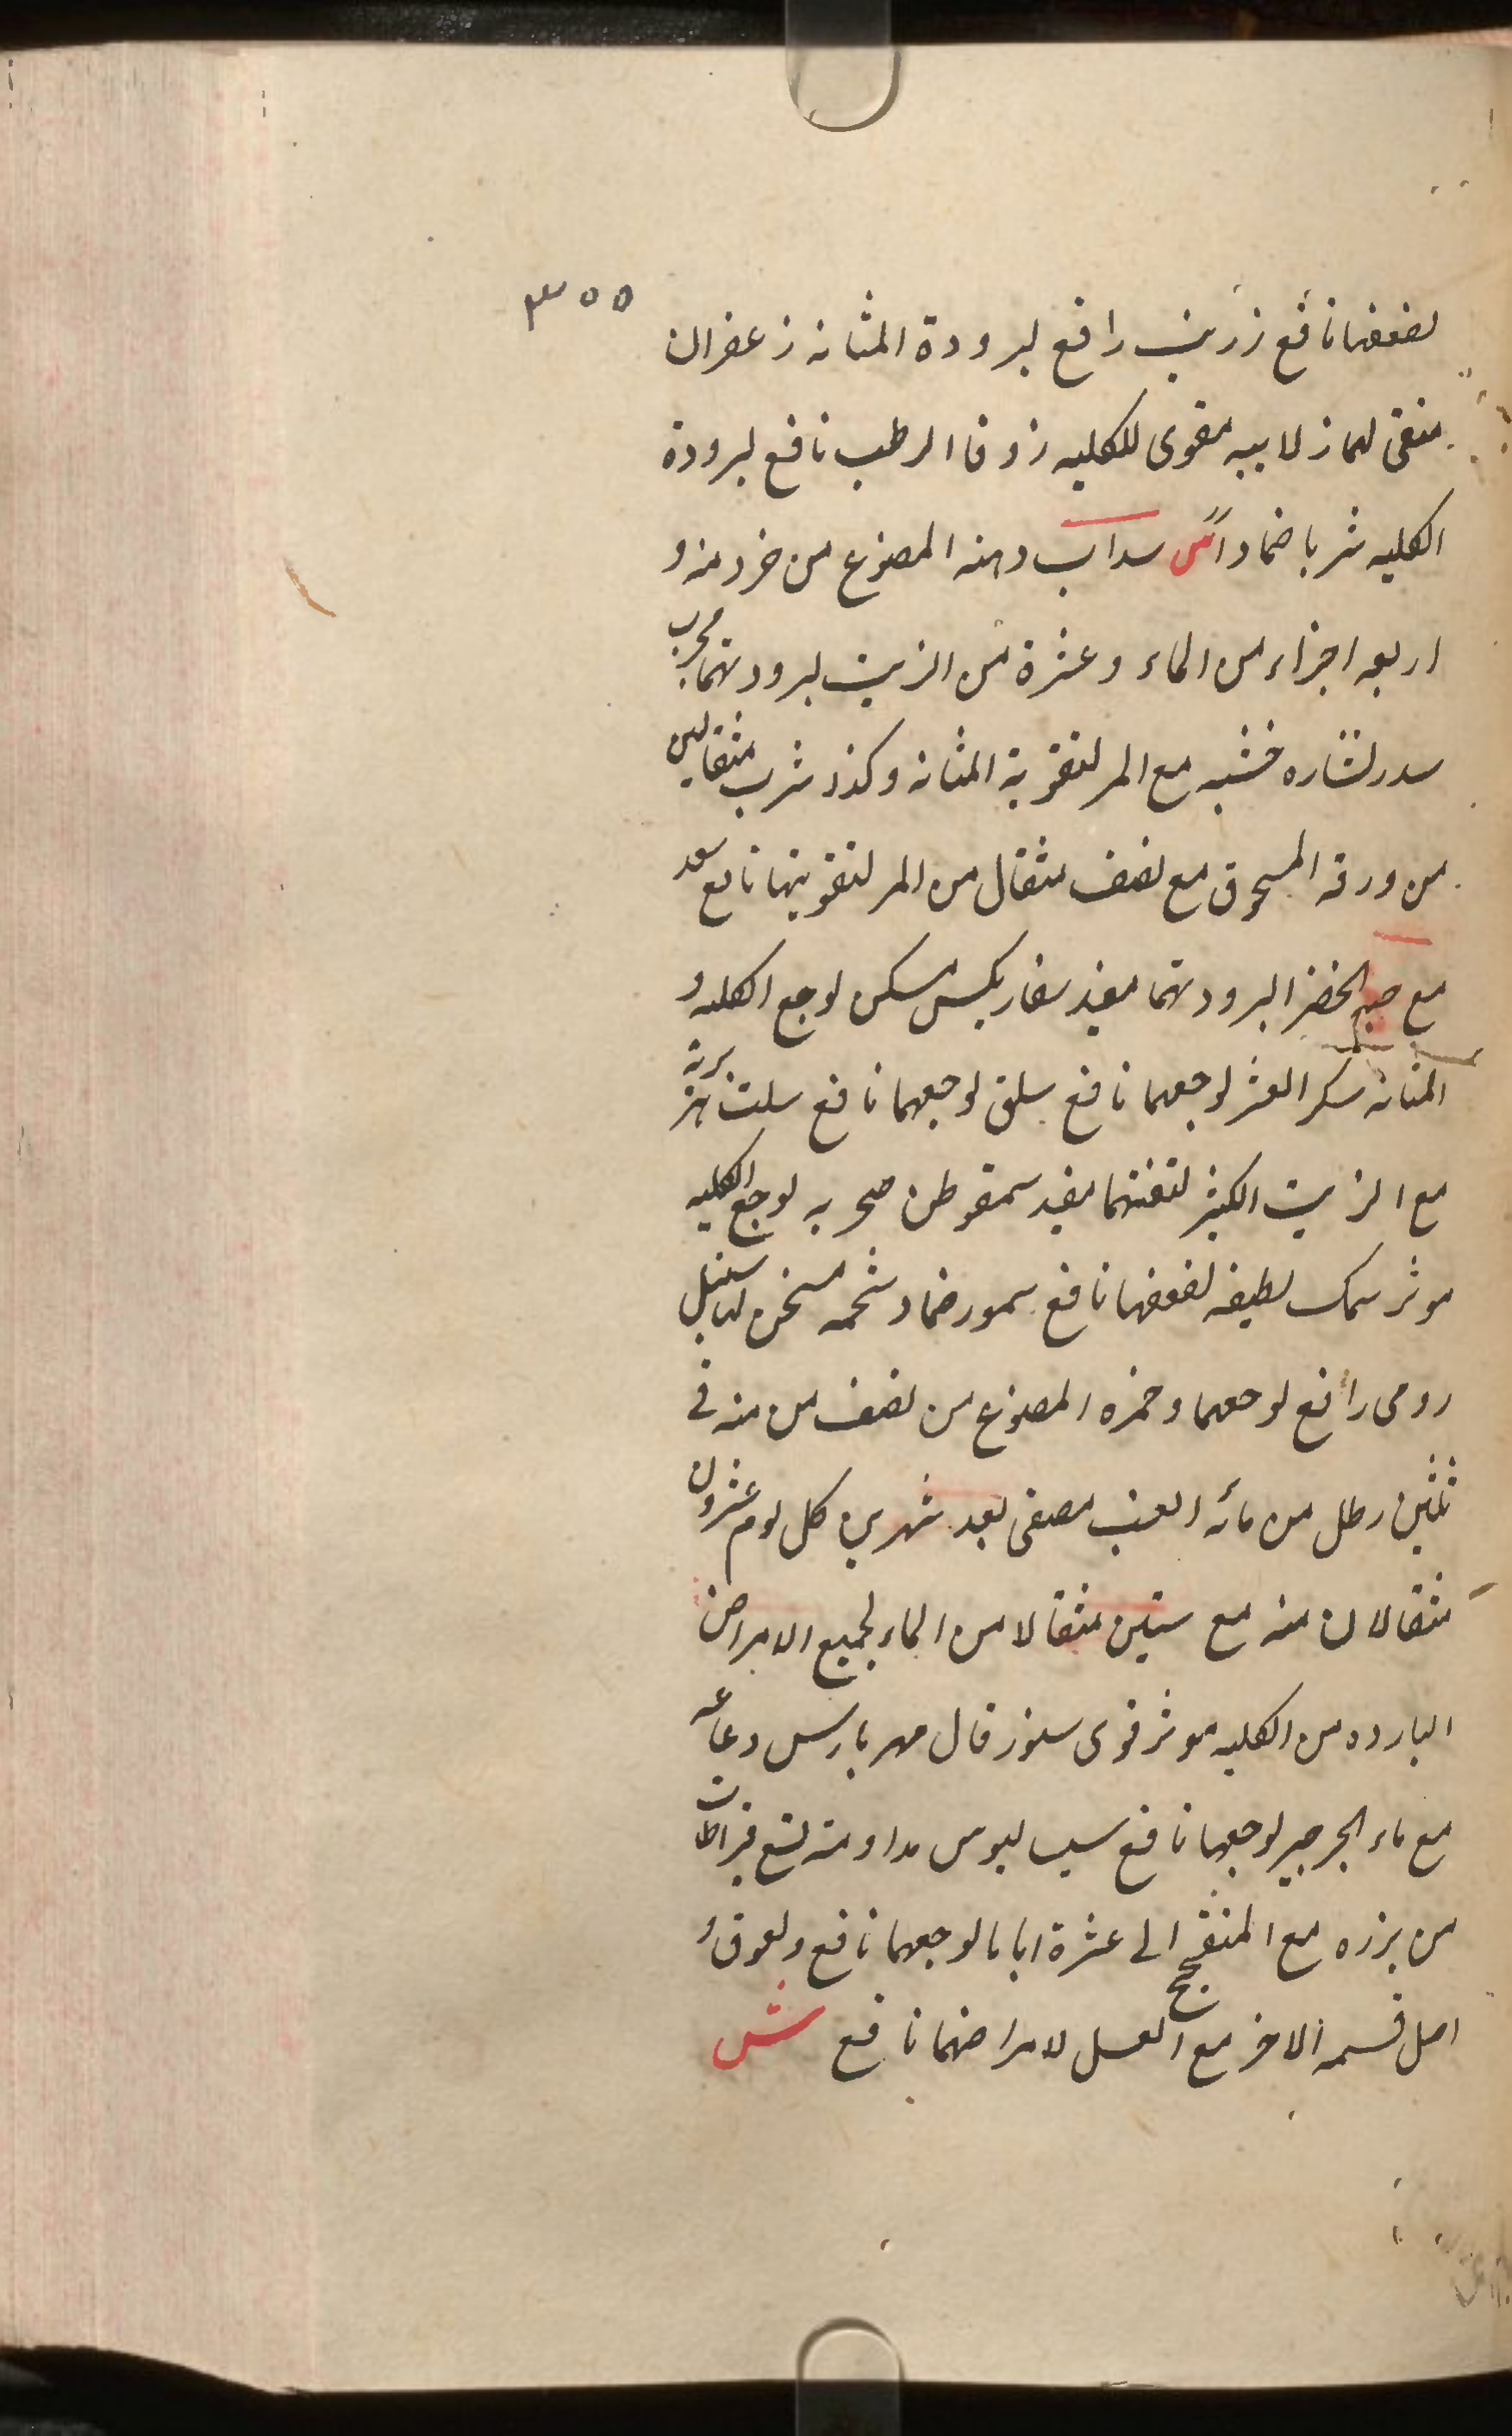 ٣٥٥
لضعفها نافع زرنب رافع لبرودة المثانه زعفران
منقى لهما زلابيه مقوى للكليه زوفا الرطب نافع لبرودة
الكليه شربا ضماداً س سداب دهنه المصنوع من خرد منه و
اربعه اجزاء من الماء وعشرة من الزيت لبرودتهما مجرب
سدر نشاره خشبه مع المر لتقوية المثانه وكذا شرب مثقالين
من ورقه المسحوق مع نصف مثقال من المر لتقويتها نافع سعد
مع حبه الخضرا لبرودتهما مفيد سفاريكس مسكن لوجع الكليه و
المثانه سكر العشر لوجعهما نافع سلق لوجعهما نافع سلت
مع الزيت الكثير لتفتتهما مفيد سمقوطن صخريه لوجع الكليه
موثر سمك لطيفه لضعفها نافع سمور ضماد شحمه مسخن لها سنبل
رومى رافع لوجعهما وخمره المصنوع من نصف من منه فى
ثلثين رطل من مائه العنب مصفى بعد شهرين كل يوم عشرون
مثقالان منه مع ستين مثقالا من الماء لجميع الامراض
البارده من الكليه موثر قوى سنور قال مهربارس دماغه
مع ماء الجرجير لوجعها نافع سيساليوس مداومته تسع قيراطات
من بزره مع المنفجج الى عشرة ايام لوجعهما نافع ولعوق و
اصل قسمه الاخر مع العسل لامراضهما نافع ش